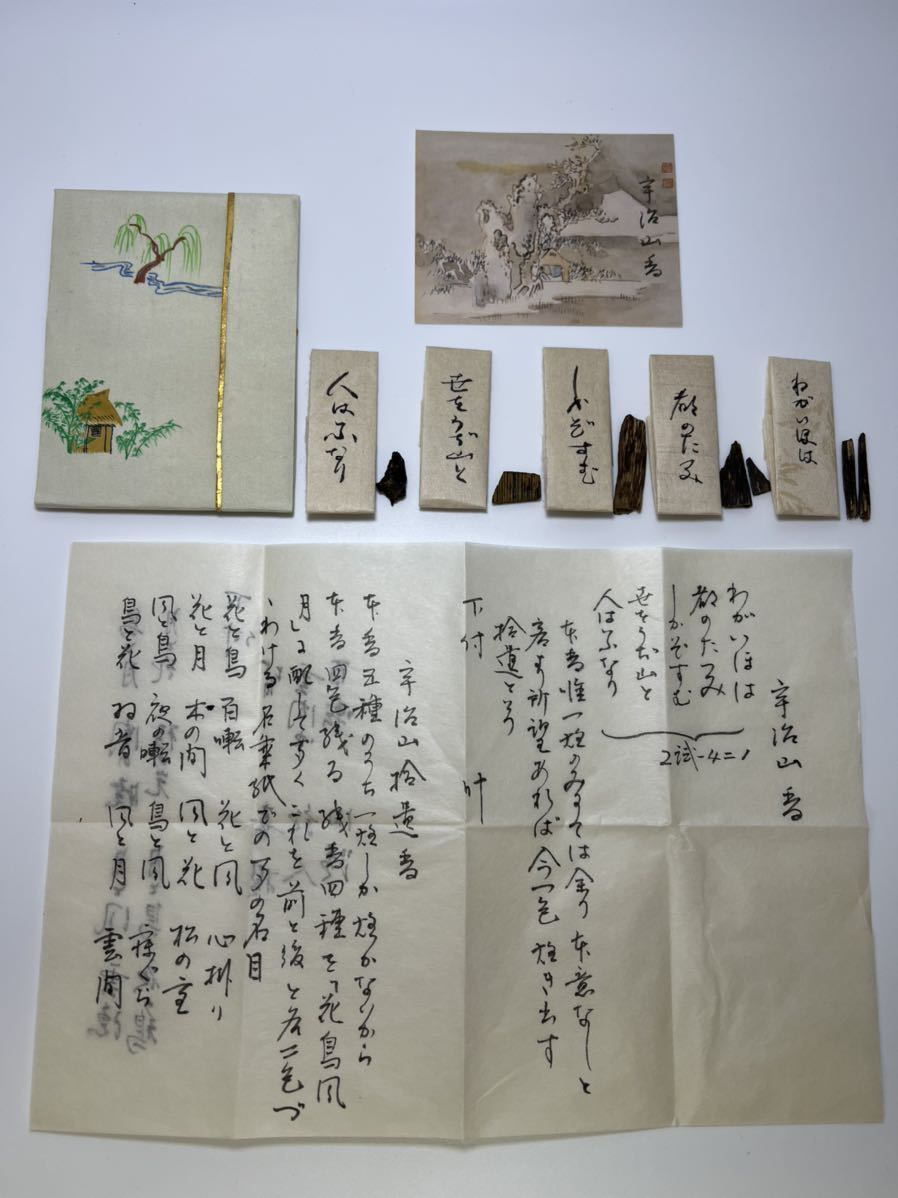 宇治山香
人はいふなり
世をうぢ山と
しかぞすむ
都のたつみ
わがいほは
宇治山香
わがいほは
都のたつみ
しかぞすむ
世をうぢ山と
人はいふなり
2試-4=1
本香唯一炷のみにては余り本意なしと
客より所望あれば今一色炷き出す
拾遺とり
下付 叶
宇治山拾遺香
本香五種のうち一炷しか炷かないから
本香四色残る 残香四種を「花鳥風
月」に配して
これを前と後と各二色づ
つわける 名乗紙
の名目
花と鳥 百囀 花と風 心掛り
花と月 木の間 風と花 松の
風と鳥 夜の囀 鳥と風
鳥と花 羽音 風と月 雲間